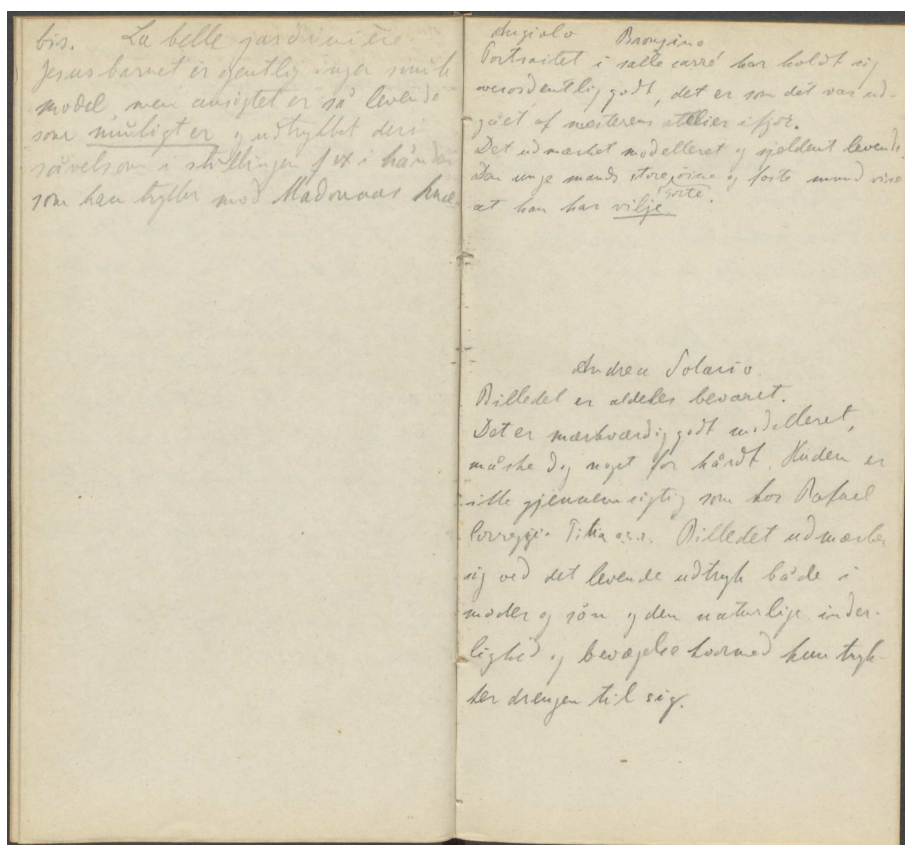 bis. La belle jardinière
Jesusbarnet er egentlig ingen smuk
model men ansigtet er så levende
som muligt er og udtrykket deri
såvelsom i stillingen f ex i hånden
som han trykker mod Madonnas knæ.
Angiolo Bronzino
Portraitet i salle carré har holdt sig
overordentlig godt, det er som det var ud-
gået af mesterens atelier ifjor.
Det udmærket modelleret og sjeldent levende.
Den unge mands store øine og faste mund vise
sorte
at han har vilje.
Andrea Solario
Billedet er aldeles bevaret.
Det er mærkværdig godt modelleret,
måske dog noget for hårdt. Huden er
ikke gjennemsigtig som hos Rafael
Correggio Titian o.s.v. Billedet udmærker
sig ved det levende udtryk både i
moder og søn og den naturlige inder-
lighed og bevægelse hvormed hun tryk-
ker drengen til sig.